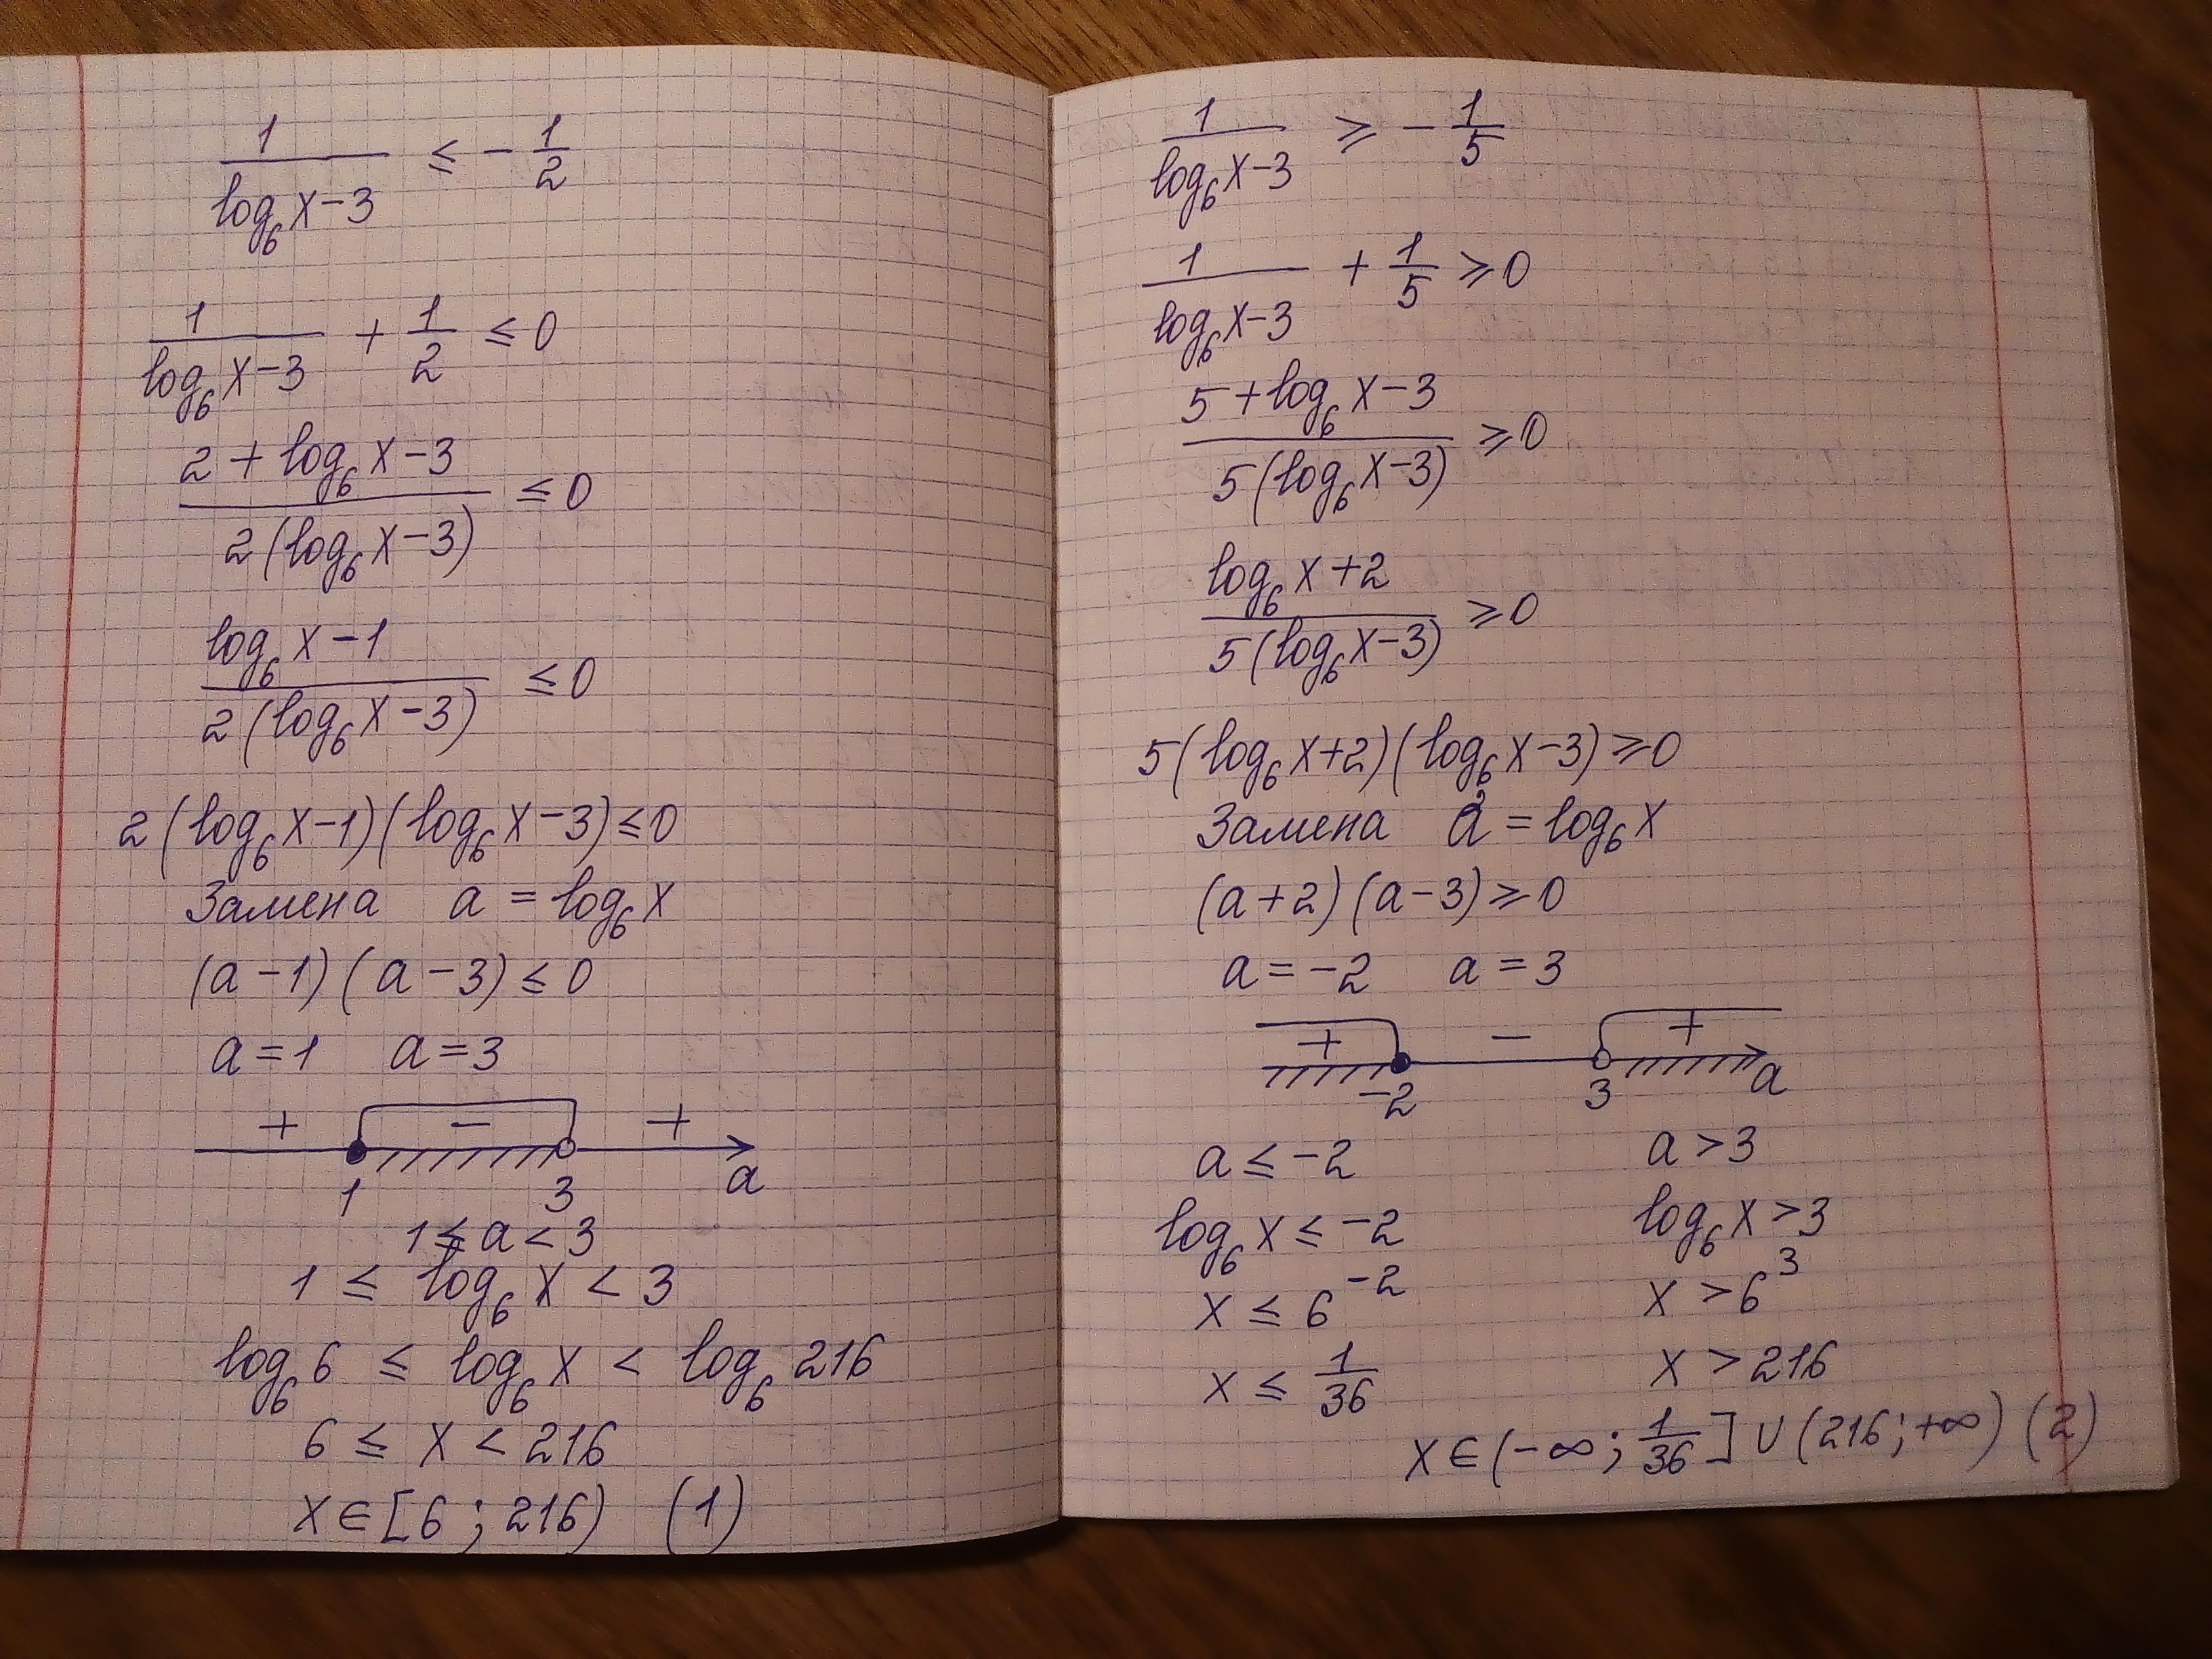 1/(log₆x-3) ≤ -1/2
1/(log₆x-3) + 1/2 ≤ 0
(2+log₆x-3)/(2(log₆x-3)) ≤ 0
(log₆x-1)/(2(log₆x-3)) ≤ 0
2(log₆x-1)(log₆x-3)≤0
Замена a = log₆x
(a-1)(a-3)≤0
a=1 a=3
+ - +
1 3 a
1≤a<3
1 ≤ log₆x < 3
log₆6 ≤ log₆x < log₆216
6 ≤ x < 216
x∈[6; 216) (1)
1/(log₆x-3) ≥ -1/5
1/(log₆x-3) + 1/5 ≥ 0
(5+log₆x-3)/(5(log₆x-3)) ≥ 0
(log₆x+2)/(5(log₆x-3)) ≥ 0
5(log₆x+2)(log₆x-3)≥0
Замена a = log₆x
(a+2)(a-3)≥0
a=-2 a=3
+ - +
-2 3 a
a≤-2 a>3
log₆x≤-2 log₆x>3
x≤6⁻² x>6³
x≤1/36 x>216
x∈(-∞; 1/36]∪(216;+∞) (2)